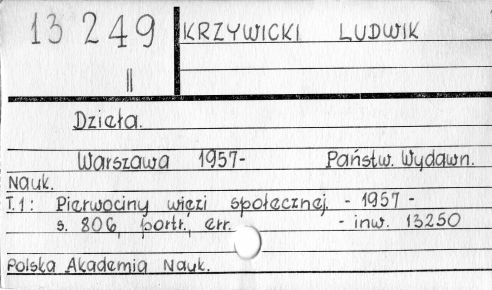 13 249 KRZYWICKI LUDWIK
II
Dzieła.
Warszawa 1957- Państw. Wydawn.
Nauk.
T.1: Pierwociny więzi społecznej - 1957 -
s. 806, portr., err. - inw. 13250
Polska Akademia Nauk.